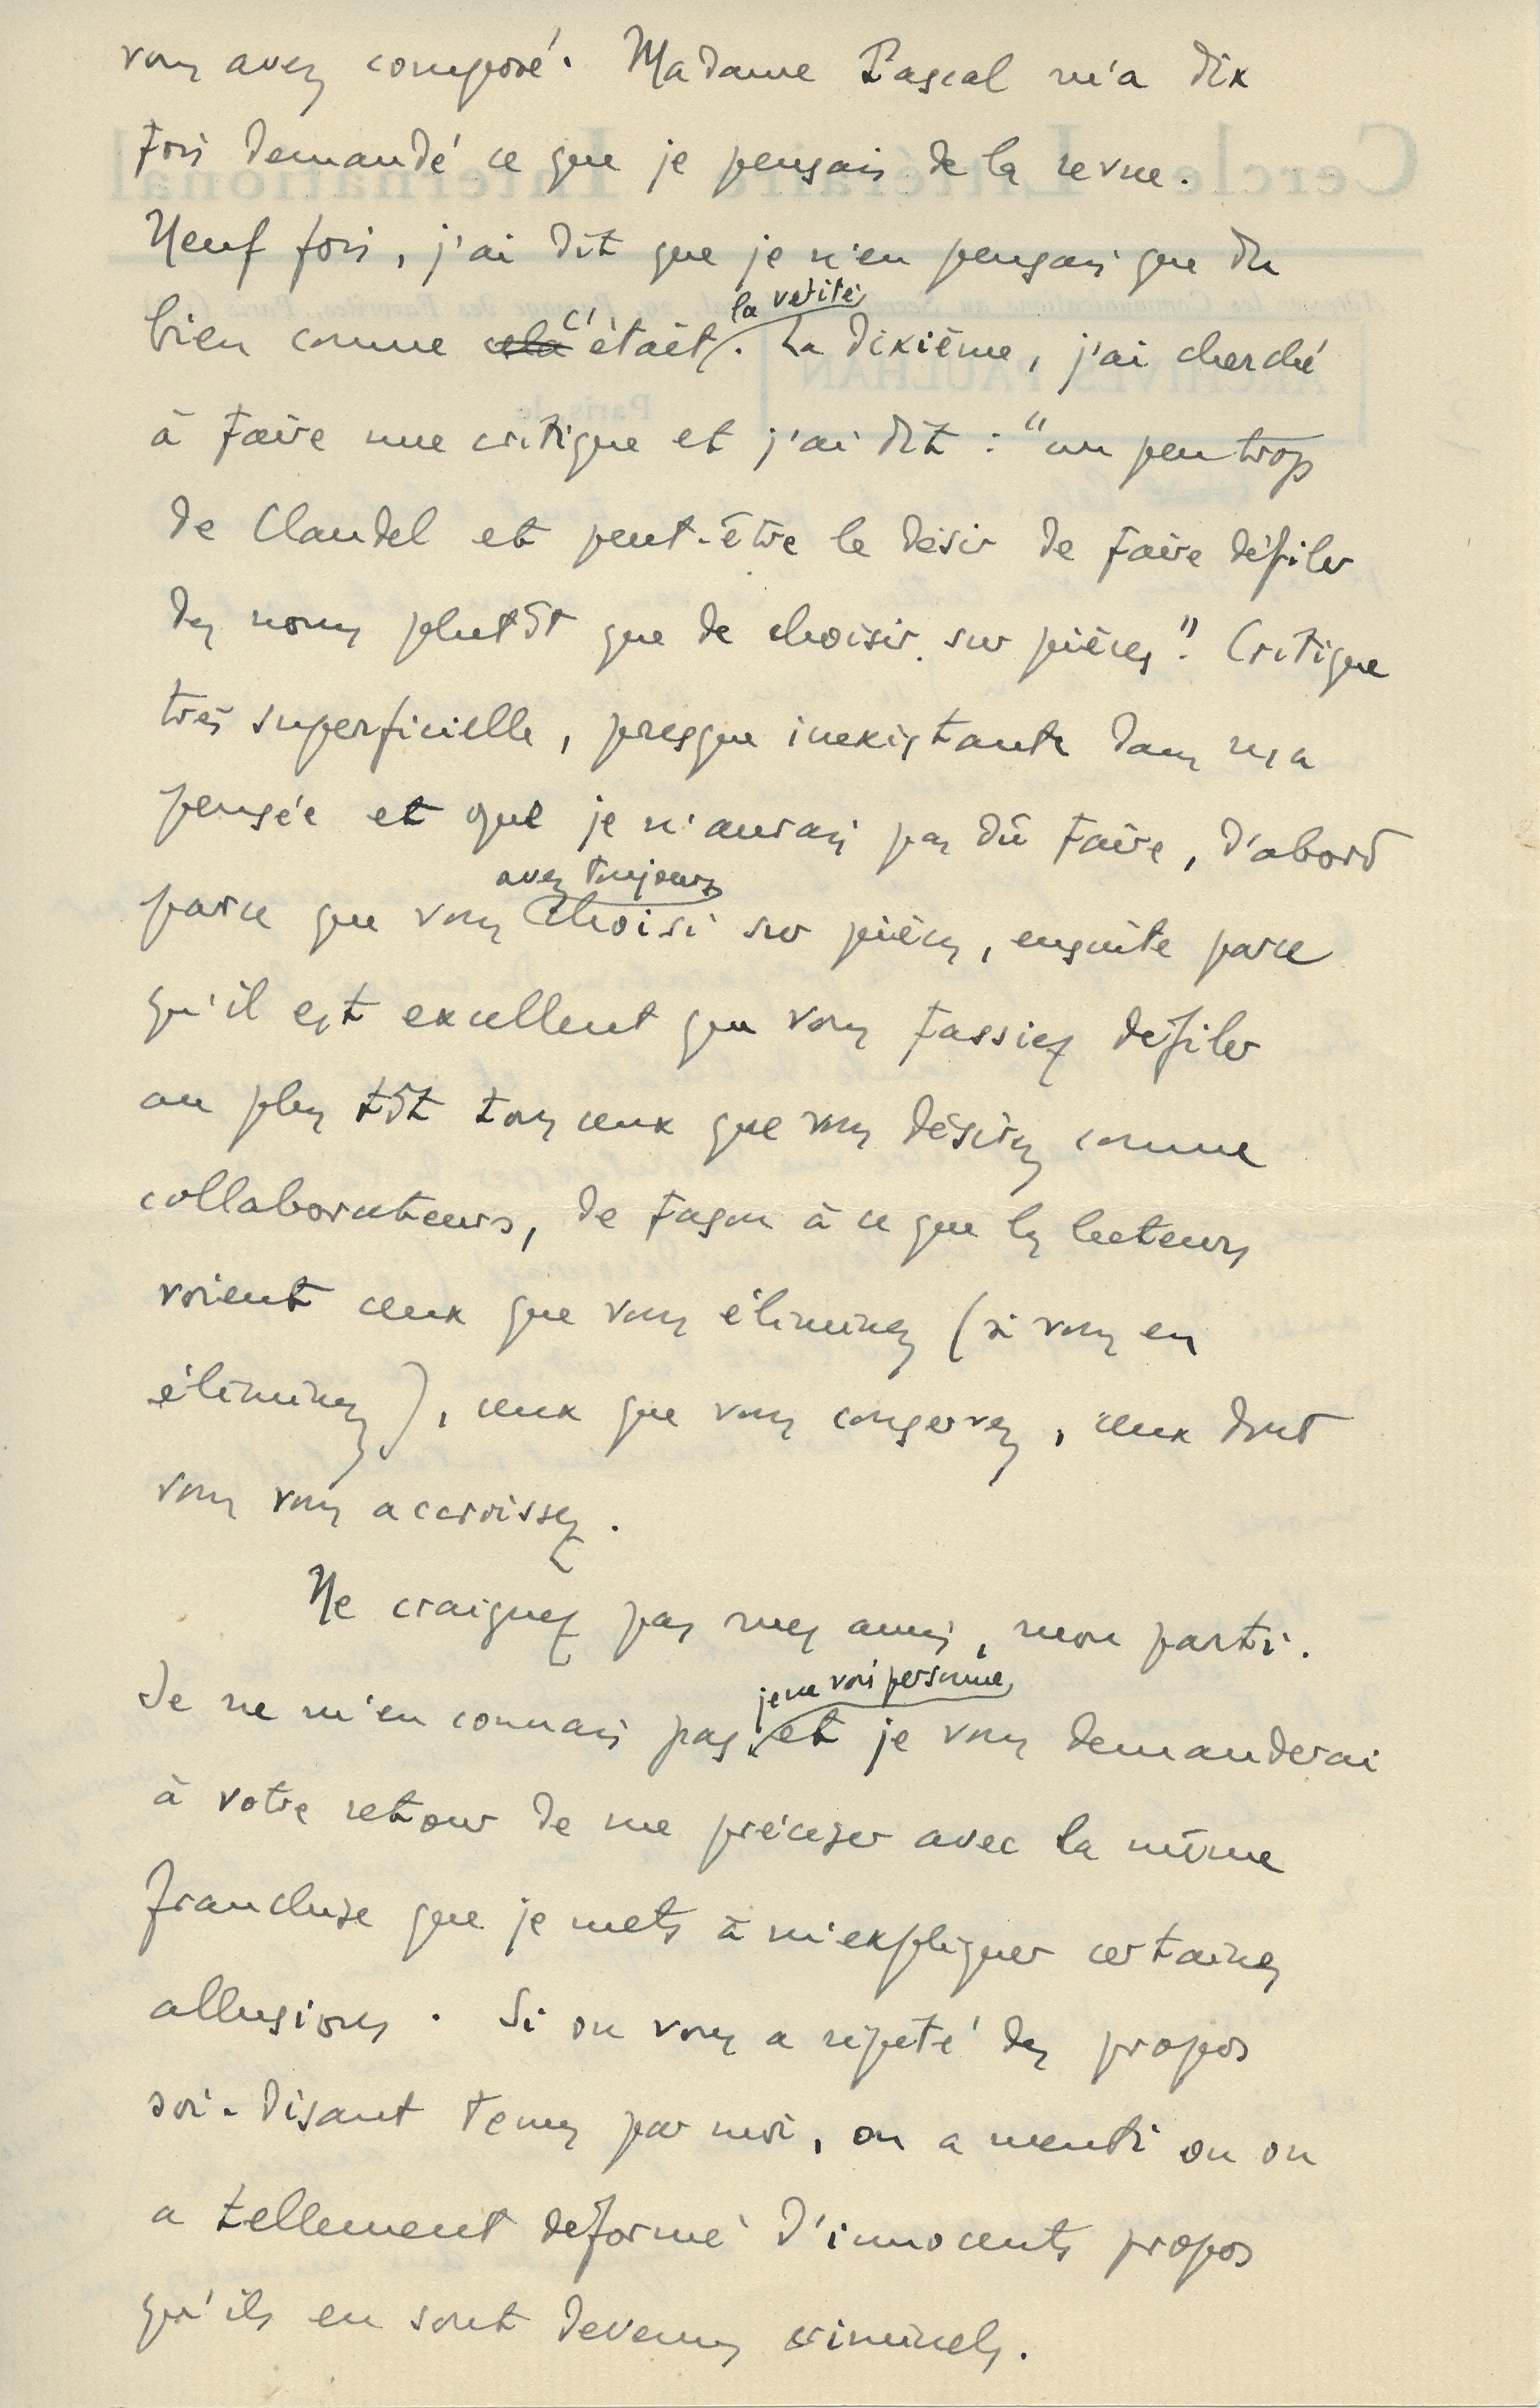 vous avez composé. Madame Pascal m'a dix
fois demandé ce que je pensais de la revue.
Neuf fois, j'ai dit que je n'en pensais que du
bien comme cela c'était la vérité. La dixième, j'ai cherché
à faire une critique et j'ai dit : "un peu trop
de Claudel et peut-être le désir de faire défiler
des noms plutôt que de choisir sur pièces". Critique
très superficielle, presque inexistante dans ma
pensée et que je n'aurais pas dû faire, d'abord
parce que vous avez toujours choisi sur pièces, ensuite parce
qu'il est excellent que vous fassiez défiler
au plus tôt tous ceux que vous désirez comme
collaborateurs, de façon à ce que les lecteurs
voient ceux que vous éliminez (si vous en
éliminez), ceux que vous conservez, ceux dont
vous vous accroissez.
Ne craignez pas mes amis, mon parti.
Je ne m'en connais pas, je ne vois personne et je vous demanderai
à votre retour de me préciser avec la même
franchise que je mets à m'expliquer certaines
allusions. Si on vous a répété des propos
soi-disant tenus par moi, on a menti ou on
a tellement déformé d'innocents propos
qu'ils en sont devenus criminels.
Cercle Littéraire International
ARCHIVES PAULHAN
Paris, le